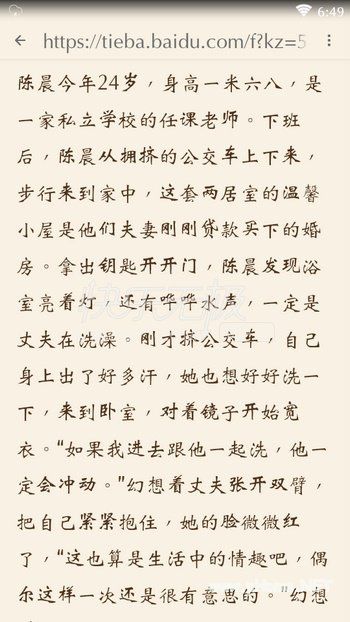 6:49
https://tieba.baidu.com/f?kz=5
陈晨今年24岁，身高一米六八，是
一家私立学校的任课老师。下班
后，陈晨从拥挤的公交车上下来，
步行来到家中，这套两居室的温馨
小屋是他们夫妻刚刚贷款买下的婚
房。拿出钥匙开开门，陈晨发现浴
室亮着灯，还有哗哗水声，一定是
丈夫在洗澡。刚才挤公交车，自己
身上出了好多汗，她也想好好洗一
下，来到卧室，对着镜子开始宽
衣。“如果我进去跟他一起洗，他一
定会冲动。”幻想着丈夫张开双臂，
把自己紧紧抱住，她的脸微微红
了，“这也算是生活中的情趣吧，偶
尔这样一次还是很有意思的。”幻想